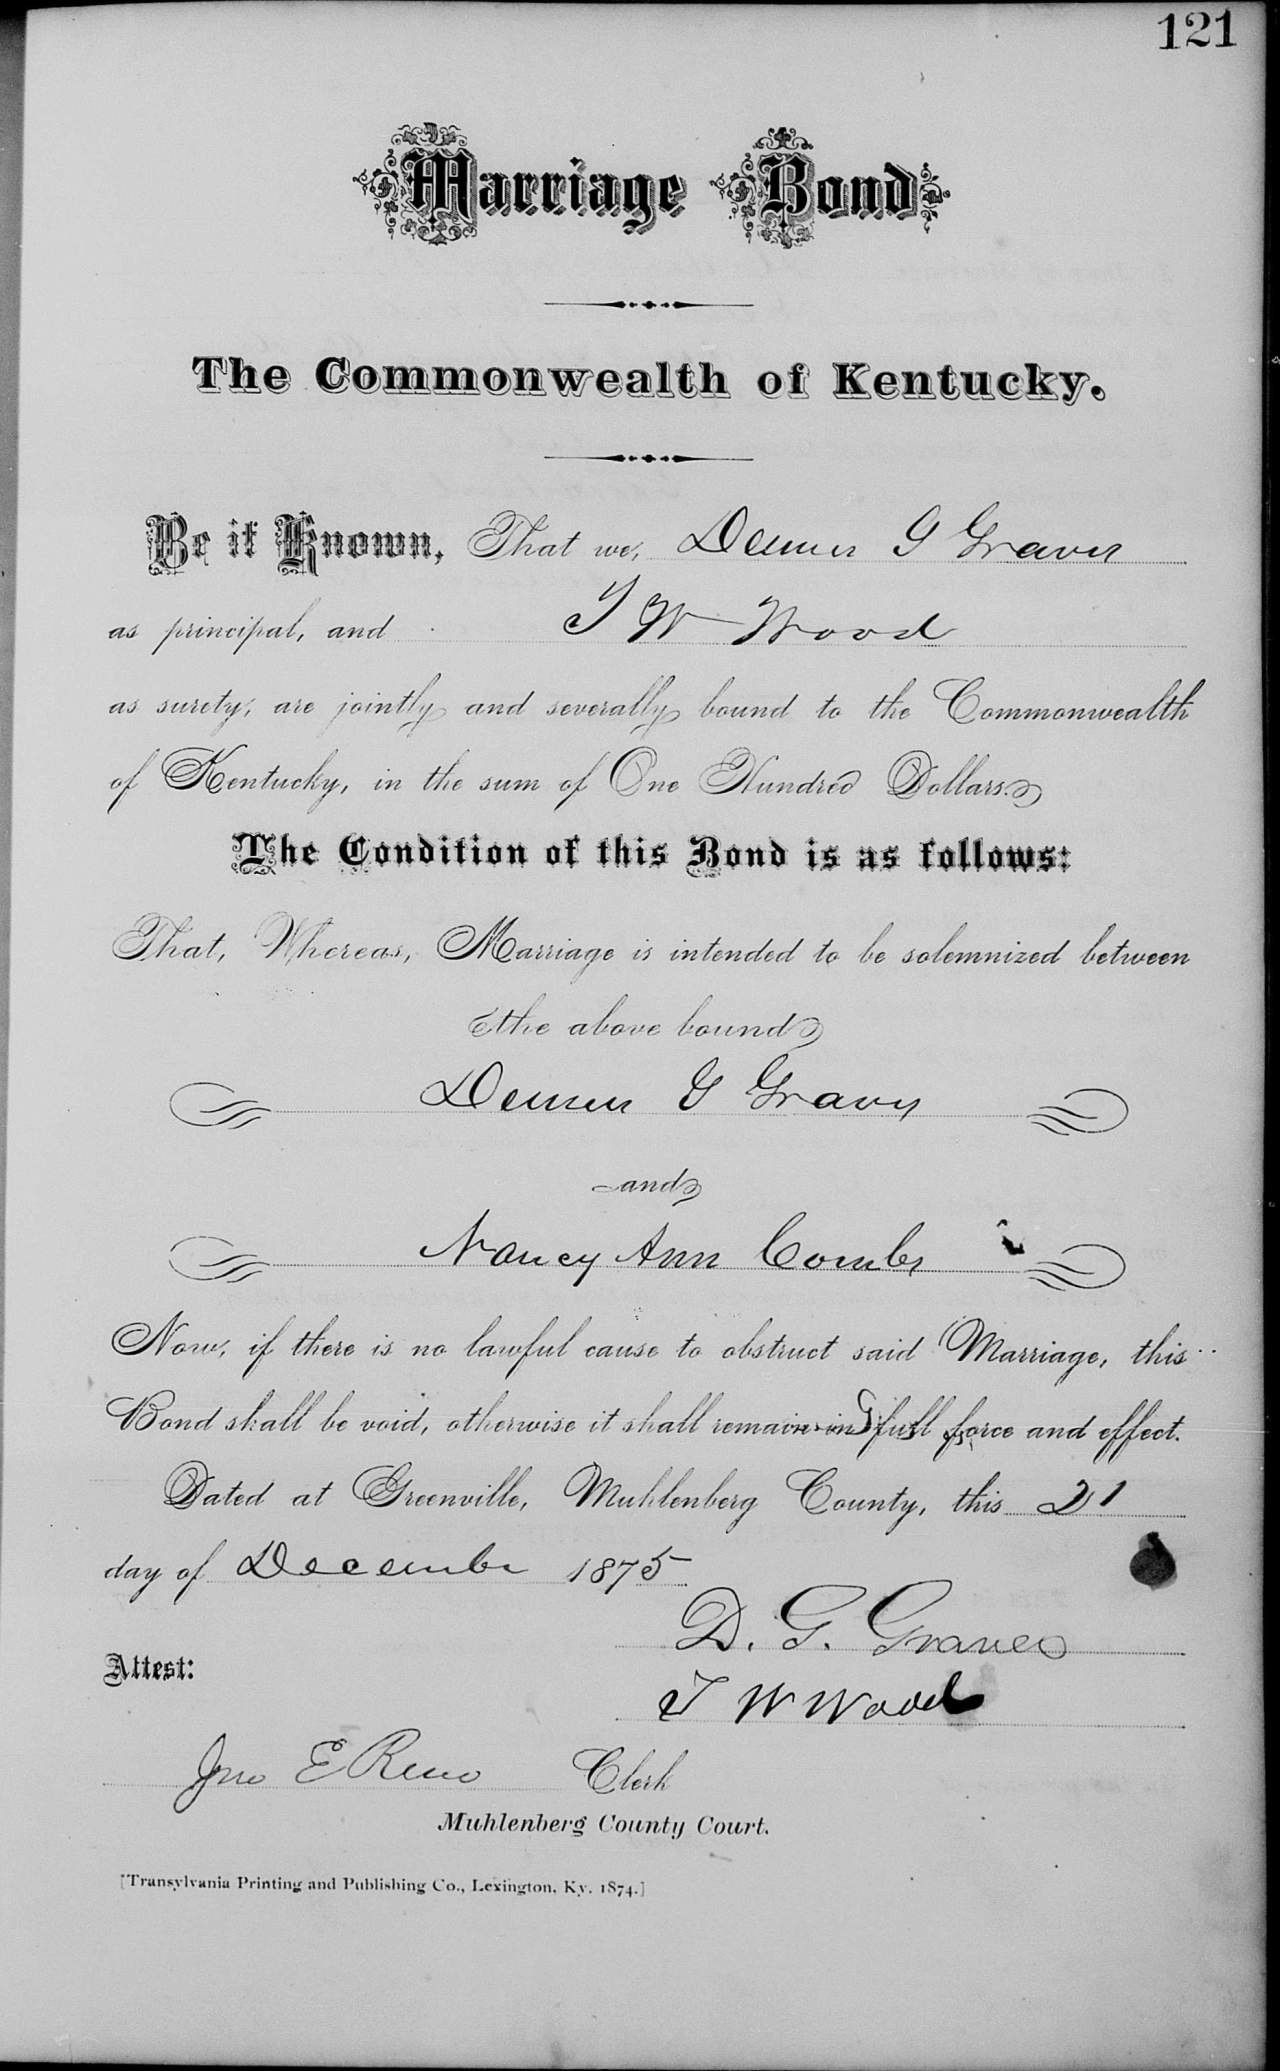 121
Marriage Bond
The Commonwealth of Kentucky.
Be it Known, That we, G Graves
as principal, and T W Wood
as surety, are jointly and severally bound to the Commonwealth
of Kentucky, in the sum of One Hundred Dollars.
The Condition of this Bond is as follows:
That, Whereas, Marriage is intended to be solemnized between
the above bound
G Graves
and
Nancy Ann Combs
Now, if there is no lawful cause to obstruct said Marriage, this
Bond shall be void, otherwise it shall remain in full force and effect.
Dated at Greenville, Muhlenberg County, this 21
day of December 1875
D. G. Graves
Attest:
T W Wood
Jno E Reno Clerk
Muhlenberg County Court.
[Transylvania Printing and Publishing Co., Lexington, Ky. 1874.]